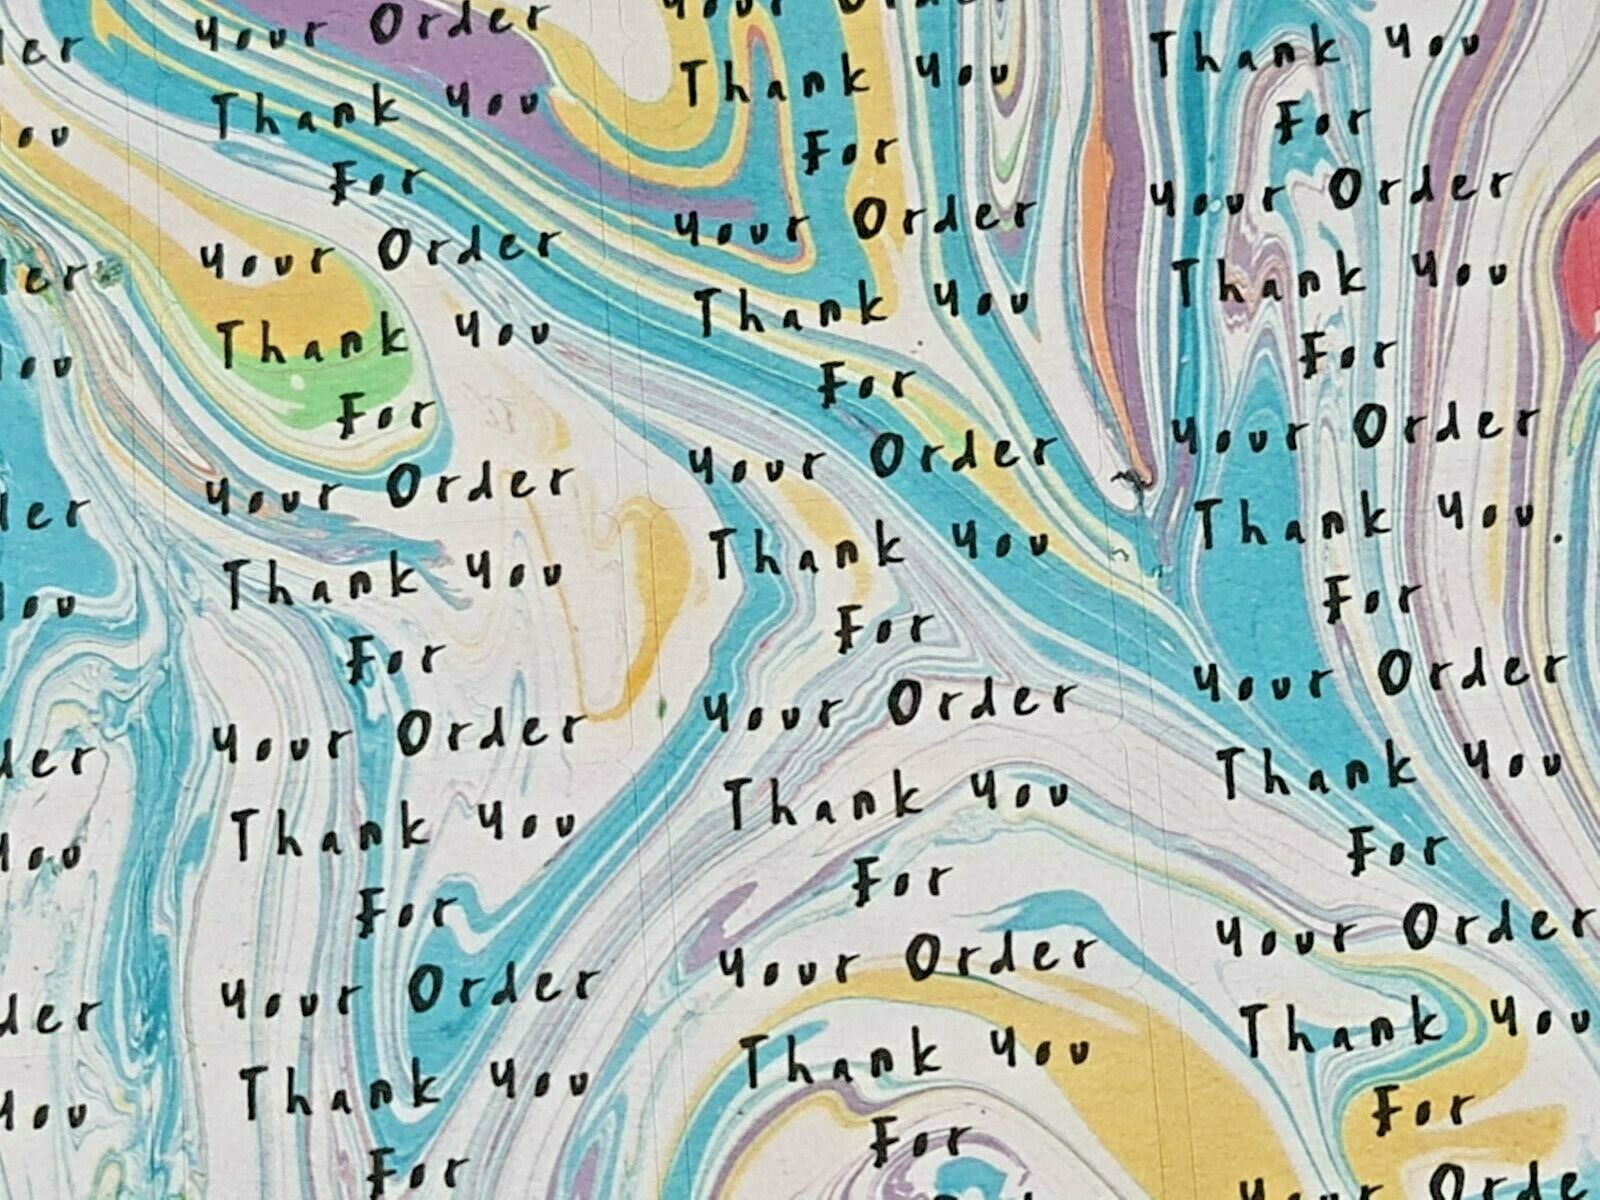 der
ou
der
you
der
you
der
you
der
you
Your Order
Thank You
For
Your Order
Thank You
For
Your Order
Thank You
For
Your Order
Thank You
For
Your Order
Thank You
For
Your Order
Thank You
For
Your Order
Thank You
For
Your Order
Thank You
For
Your Order
Thank You
For
Your Order
Thank You
For
Thank You
For
Your Order
Thank You
For
Your Order
Thank You
For
Your Order
Thank You
For
Your Order
Thank You
For
Your Orde